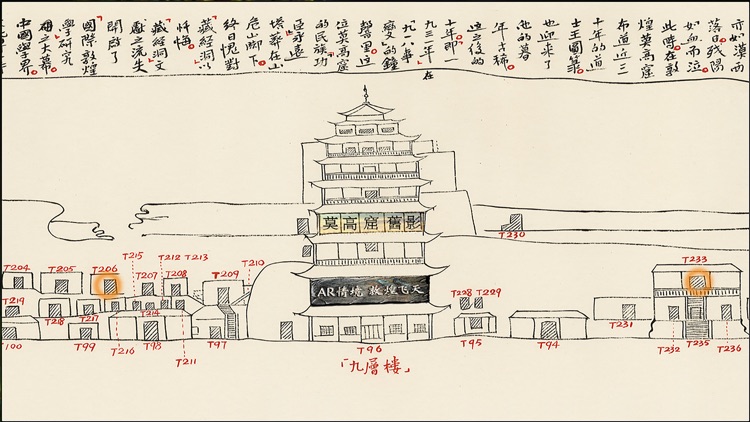 落日残陽
如血而泣。
此時在敦
煌莫高窟
布道近三
十年的道
士王圓箓
也迎來了
他的暮
年古稀。
這之後的
十年即一
九三一年在
「九一八事
變」的鐘
聲里這
位莫高窟
的民族功
臣永遠
塔葬在山
危山脚下。
終日愧對
「藏經洞」以
懺悔。
「藏經洞」文
獻之流失
開啟了
國際敦煌
學研究
之大幕。
中國學界
莫高窟舊影
AR情境 敦煌飞天
T230
T233
T215
T212
T213
T210
T204
T205
T206
T207
T208
T209
T228
T229
T219
T218
T217
T214
T231
T100
T99
T216
T98
T211
T97
T96
T95
T94
T232
T235
T236
「九層楼」